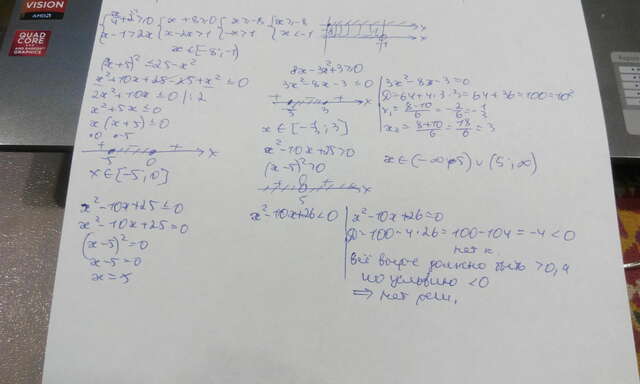 VISION
AMD
QUAD
CORE
AND RADEON™
GRAPHICS
{x/4+2≥0 {x+8≥0 {x≥-8 {x≥-8
x-1>2x {x-2x>1 {-x>1 {x<-1
x∈[-8;-1)
(x+5)²≤25-x²
x²+10x+25-25+x²≤0
2x²+10x≤0 |:2
x²+5x≤0
x(x+5)≤0
0 -5
+ - +
-5 0 x
x∈[-5;0]
x²-10x+25≤0
x²-10x+25=0
(x-5)²=0
x-5=0
x=5
8x-3x²+3≥0
3x²-8x-3=0
+ - + x
x∈[-1/3;3]
x²-10x+25>0
(x-5)²>0
5
x²-10x+26<0
3x²-8x-3=0
D=64+4·3·3=64+36=100=10²
x₁=8-10/6=-2/6=-1/3
x₂=8+10/6=18/6=3
x∈(-∞;5)∪(5;∞)
x²-10x+26=0
D=100-4·26=100-104=-4<0
нет к.
всё должно быть >0, а
по условию <0
⇒ нет реш.